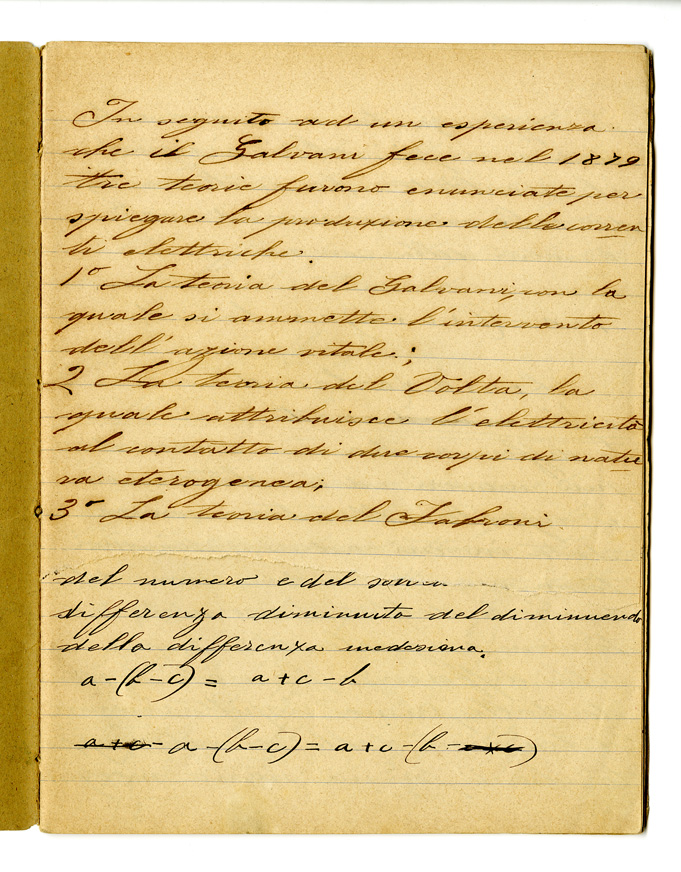 In seguito ad un esperienza
che il Galvani fece nel 1879
tre teorie furono enunciate per
spiegare la produzione delle corren
ti elettriche.
1º La teoria del Galvani, con la
quale si ammette l'intervento
dell'azione vitale;
2 La teoria del Volta, la
quale attribuisce l'elettricità
al contatto di due corpi di natu
ra eterogenea;
3º La teoria del Fabroni
del numero e del
differenza diminuito del diminuendo
della differenza medesima.
a-(b-c) = a+c-b
a+c- a-(b-c) = a+c-(b-)